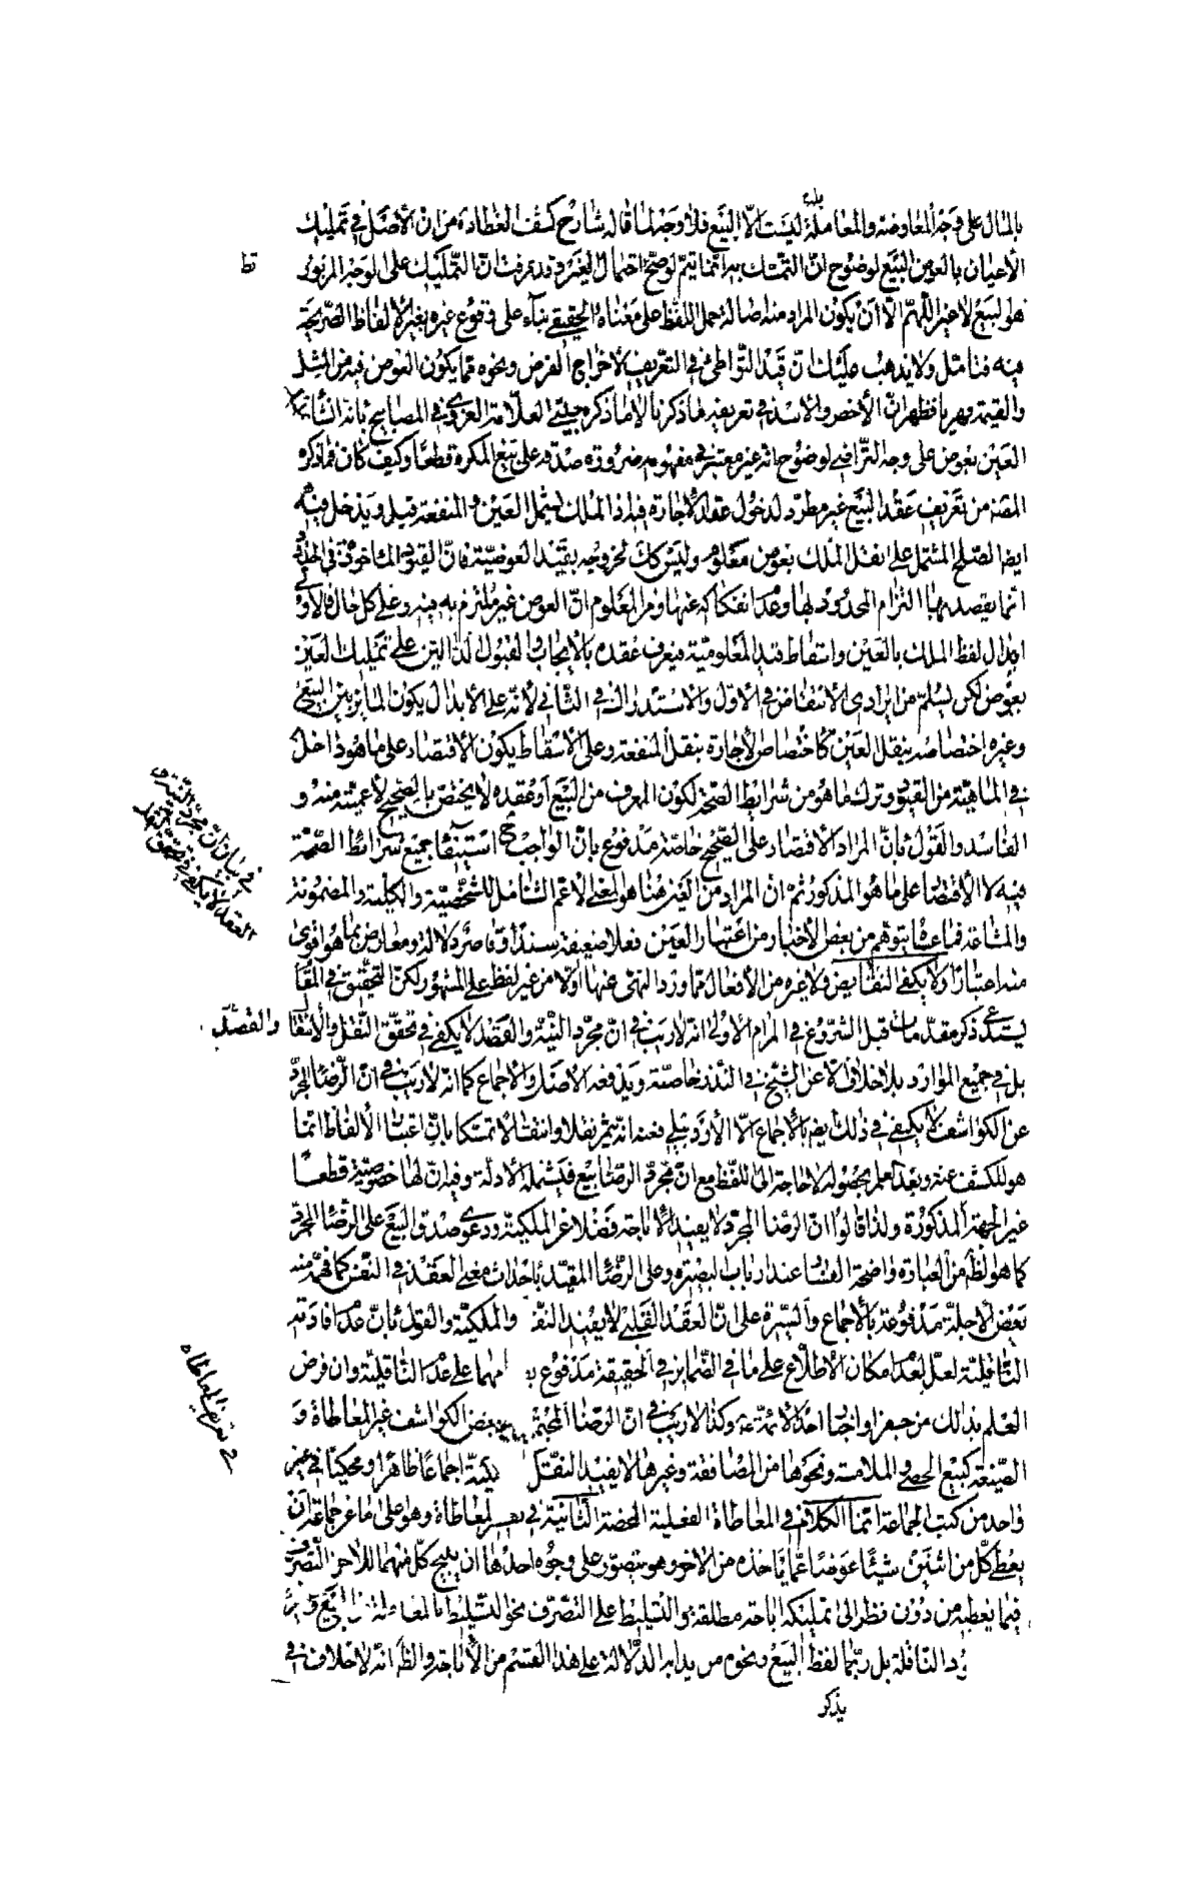 بالمال على وجه المعاوضة والمعاملة ليست الا البيع فلا وجه لما قاله شارح كشف الغطاء من ان الأصل في تمليك
الأعيان بالعوض البيع لوضوح ان التمسك به انما يتم لو صح احتمال الغير وقد عرفت ان التمليك على الوجه المزبور
هو البيع لا غير اللهم الا ان يكون المراد منه اصالة حمل اللفظ على معناه الحقيقي بناء على وقوع غيره بغير الألفاظ الصريحة
فيه فتامل ولا يذهب عليك ان قيد التراضي في التعريف لأخراج القرض ونحوه مما يكون العوض فيه من المثل
والقيمة قهريا فظهر ان الأخصر والاسد في تعريفه ما ذكر بالا ما ذكره العلامة الغروي في المصابيح بانه انشاء تمليك
العين بعوض على وجه التراضي لوضوح انه غير معتبر في مفهومه ضرورة صدقه على بيع المكره قطعا وكيف كان فما ذكره
المصنف من تعريف عقد البيع غير مطرد لدخول عقد الأجارة فيه اذ الملك يشمل العين والمنفعة قيل ويدخل فيه
ايضا الصلح المشتمل على نقل الملك بعوض معلوم وليس كك لخروجه بقيد العوضية فان القيود الماخوذة في الحدود
انما يقصد بها التزام المحدود لها وعدم انفكاكه عنها ومن المعلوم ان العوض غير ملتزم به فيه وعلى كل حال فالاولى
ابدال لفظ الملك بالعين واسقاط قيد المعلومية فيعرف عقده بالأيجاب والقبول الدالين على تمليك العين
بعوض لكي يسلم من ايرادي الأنتقاض في الأول والاستدراك في الثاني لأنه على الأبدال يكون المائز بين البيع
وغيره اختصاصه بنقل العين كاختصاص الأجارة بنقل المنفعة وعلى الأسقاط يكون الاقتصار على ما هو داخل
في الماهية من القيود وترك ما هو من شرايط الصحة لكون المعرف من البيع او عقده لا يختص بالصحيح لأعميته منه و
الفاسد والقول بان المراد الأقتصار على الصحيح خاصة مدفوع بان الواجب ح استيفاء جميع شرائط الصحة
فيه لا الأقتصار على ما هو المذكور ثم ان المراد من العين هنا هو المعنى الأعم الشامل للشخصية والكلية والمضمونة
والمشاعة فما عساه يتوهم من بعض الأخبار من اعتبار العين فعلا ضعيفة سندا وقاصرة دلالة ومعارض بما هو اقوى
منه اعتبارا ولا يكفي التقابض ولا غيره من الأفعال مما ورد النهي عنها اولا من غير لفظ على المشهور لكن التحقيق في المقام
يستدعي ذكر مقدمات قبل الشروع في المرام الأولى انه لا ريب في ان مجرد النية والقصد لا يكفي في تحقق النقل والأنتقال والقصد
بل في جميع الموارد بلا خلاف الا عن الشيخ في النذر خاصة ويدفعه الأصل والأجماع كما انه لا ريب في ان الرضا المجرد
عن الكواشف لا يكفي في ذلك ايضا بالأجماع الا الأردبيلي فعنده انه يثمر نقلا وانتقالا تمسكا بان اعتبار الألفاظ انما
هو للكشف عنه وبعد العلم بحصوله لا حاجة الى اللفظ مع ان مجرد الرضا بيع فيشمله الأدلة وفيه ان لها خصوصية قطعا
غير الجهة المذكورة ولذا قالوا ان الرضا المجرد لا يفيد الأباحة فضلا عن الملكية ودعوى صدق البيع على الرضا المجرد
كما هو لظ من العبارة واضحة الفساد عند ارباب البصيرة وعلى الرضا المقيد باحداث معنى العقد في النفس كما فهمه منه
بعض الأجلة مدفوعة بالأجماع والسيرة على ان العقد القلبي لا يفيد النقل والملكية والقول بان عدم افادته
الناقلية لعل لعدم امكان الأطلاع على ما في الضماير في الحقيقة مدفوع على عدم الناقلية وان فرض
العلم بذلك من جفر او اخبار احد الائمة ع وكذا لا ريب في ان الرضا بعض الكواشف غير المعاطاة و
الصيغة كبيع الحصى والملامسة ونحوها من المصافقة وغيرها لا يفيد النقل اجماعا ظاهرا ومحكيا في غير
واحد من كتب الجماعة انما الكلام في المعاطاة الفعلية المحضة الثانية في تفسير المعاطاة وهو على ما عن جماعة ان
يعطي كل من اثنين شيئا عوضا عما ياخذه من الاخر وهو يتصور على وجوه احدها ان يبيح كل منهما للاخر التصرف
فيما يعطيه من دون نظر الى تمليكه اباحة مطلقة والتسليط على التصرف نحو التسليط بالمعاملة
الناقلة بل ربما لفظ البيع ونحوه مريدا به الدلالة على هذا القسم من الأباحة والظ انه لا خلاف في
يذكر
في بيان ان مجرد
العقد لا يكفي في تحقق النقل
في تعريف المعاطاه